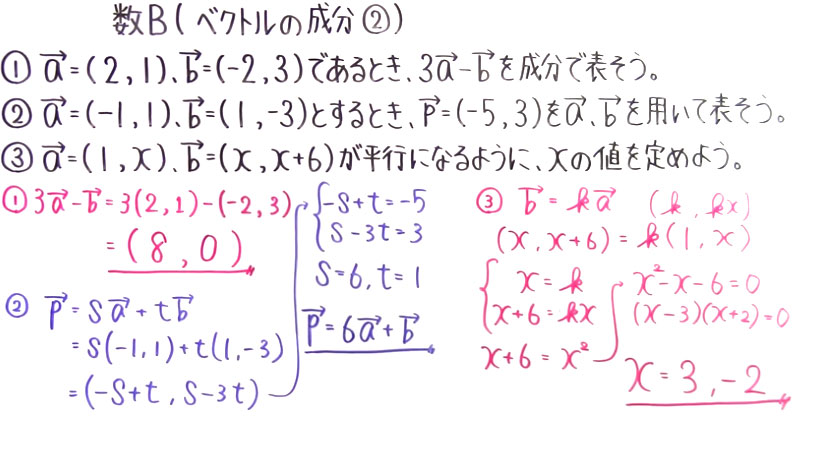 数B(ベクトルの成分②)
① a⃗=(2,1)、b⃗=(-2,3)であるとき、3a⃗-b⃗を成分で表そう。
② a⃗=(-1,1)、b⃗=(1,-3)とするとき、p⃗=(-5,3)をa⃗、b⃗を用いて表そう。
③ a⃗=(1,x)、b⃗=(x,x+6)が平行になるように、xの値を定めよう。
① 3a⃗-b⃗=3(2,1)-(-2,3)
=(8,0)
② p⃗=sa⃗+tb⃗
=s(-1,1)+t(1,-3)
=(-s+t,s-3t)
{-s+t=-5
s-3t=3
s=6,t=1
p⃗=6a⃗+b⃗
③ b⃗=ka⃗ (k,kx)
(x,x+6)=k(1,x)
{x=k
x+6=kx
x+6=x²
x²-x-6=0
(x-3)(x+2)=0
x=3,-2